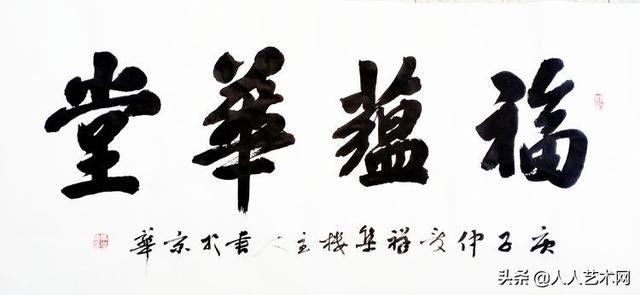 福蕴華堂
庚子仲夏祥集楼主人書於京華
头条 @人人艺术网